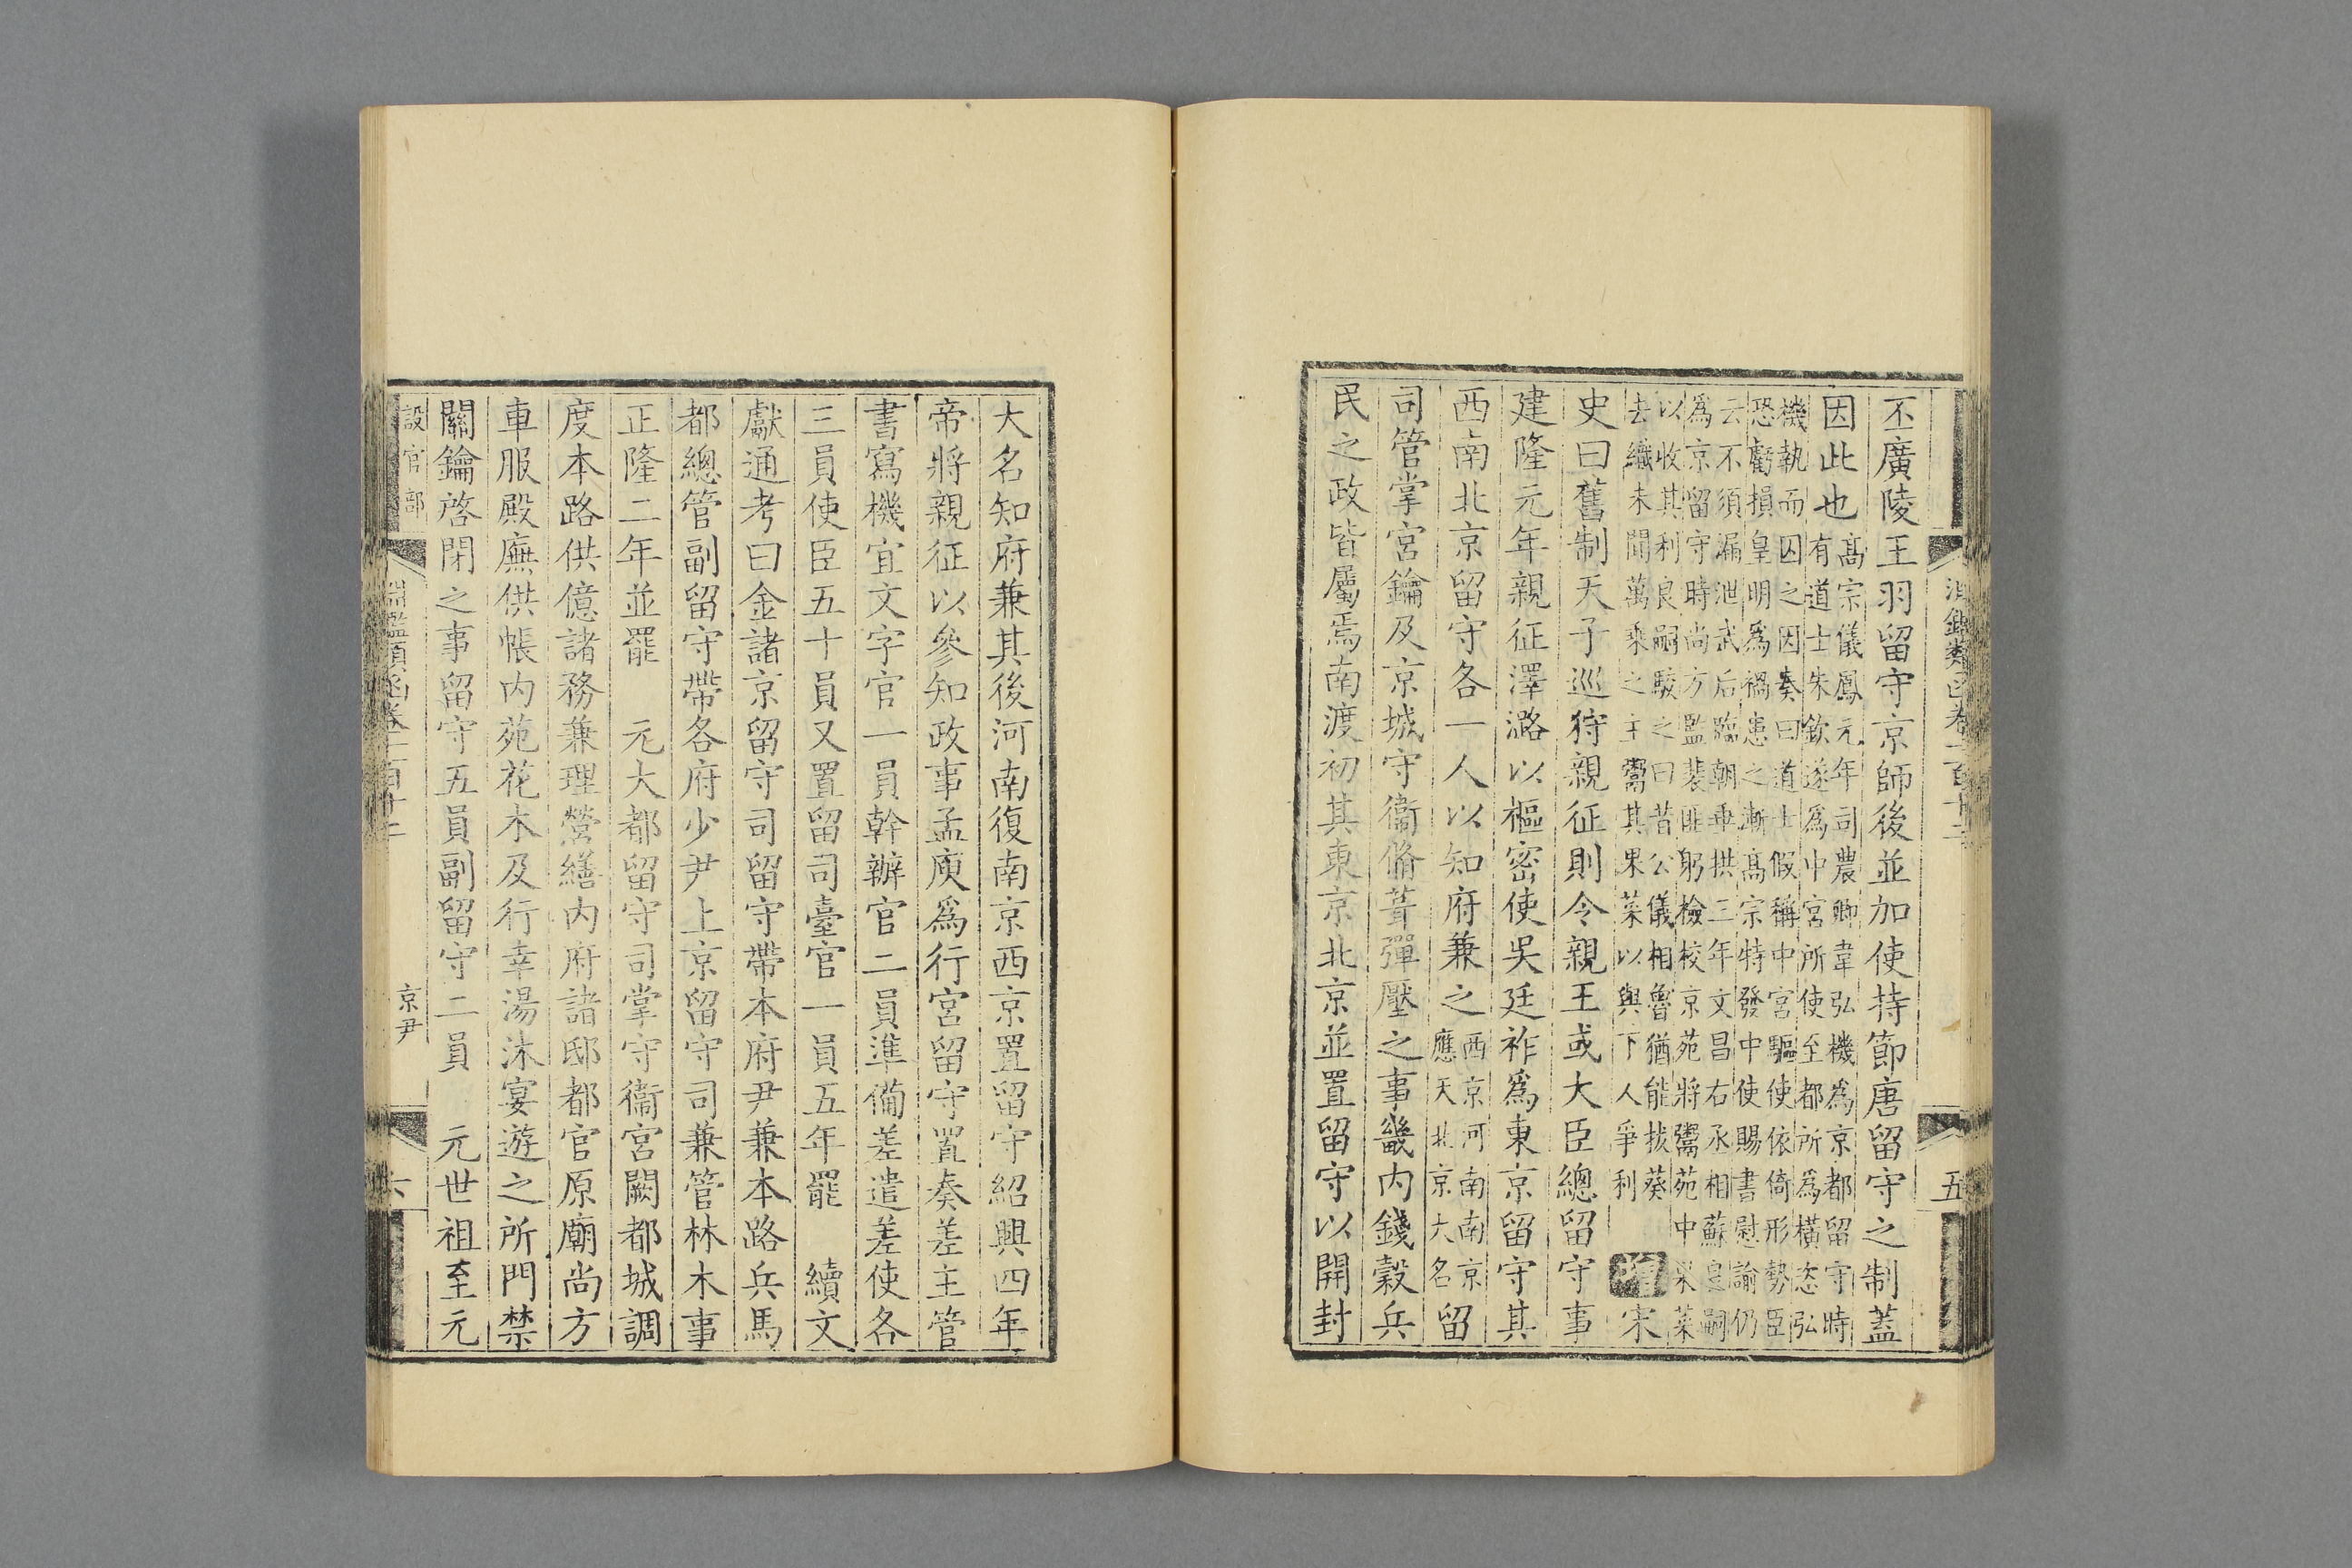 淵鑑類函卷一百十二
五
丕廣陵王羽留守京師後並加使持節唐留守之制蓋
因此也高宗儀鳳元年司農卿韋弘機爲京都留守時
有道士朱欽遂爲中宮所使至都所爲橫恣弘
機執而囚之因奏曰道士假稱中宮驅使依倚形勢臣
恐虧損皇明爲禍患之漸高宗特發中使賜書慰諭仍
云不須漏泄武后臨朝垂拱三年文昌右丞相蘇良嗣
爲京留守時尚方監裴匪躬檢校京苑將鬻苑中果菜
以收其利良嗣駁之曰昔公儀相魯猶能拔葵
去織未聞萬乘之主鬻其果菜以與下人爭利
增宋
史曰舊制天子巡狩親征則令親王或大臣總留守事
建隆元年親征澤潞以樞密使吳廷祚爲東京留守其
西南北京留守各一人以知府兼之西京河南南京
應天北京大名留
司管掌宮鑰及京城守衞脩葺彈壓之事畿内錢穀兵
民之政皆屬焉南渡初其東京北京並置留守以開封
大名知府兼其後河南復南京西京置留守紹興四年
帝將親征以參知政事孟庾爲行宮留守置奏差主管
書寫機宜文字官一員幹辦官二員準備差遣差使各
三員使臣五十員又置留司臺官一員五年罷 續文
獻通考曰金諸京留守司留守帶本府尹兼本路兵馬
都總管副留守帶各府少尹上京留守司兼管林木事
正隆二年並罷 元大都留守司掌守衞宮闕都城調
度本路供億諸務兼理營繕内府諸邸都官原廟尚方
車服殿廡供帳内苑花木及行幸湯沐宴遊之所門禁
關鑰啓閉之事留守五員副留守二員 元世祖至元
設官部
淵鑑類函卷一百十二
京尹
六